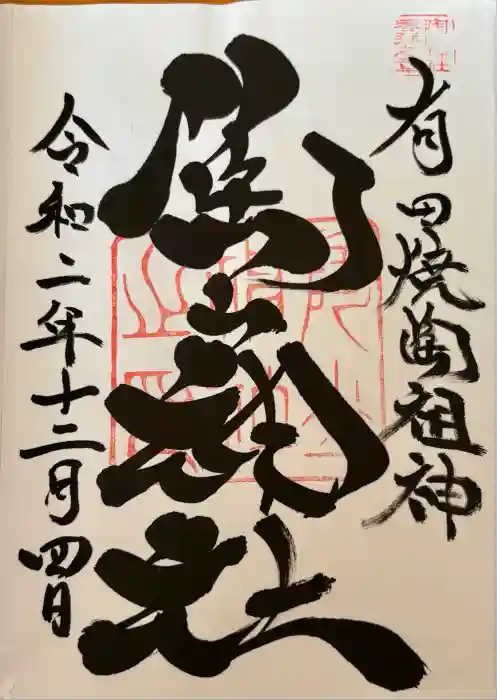 有田焼陶祖神
陶山神社
令和二年十二月四日